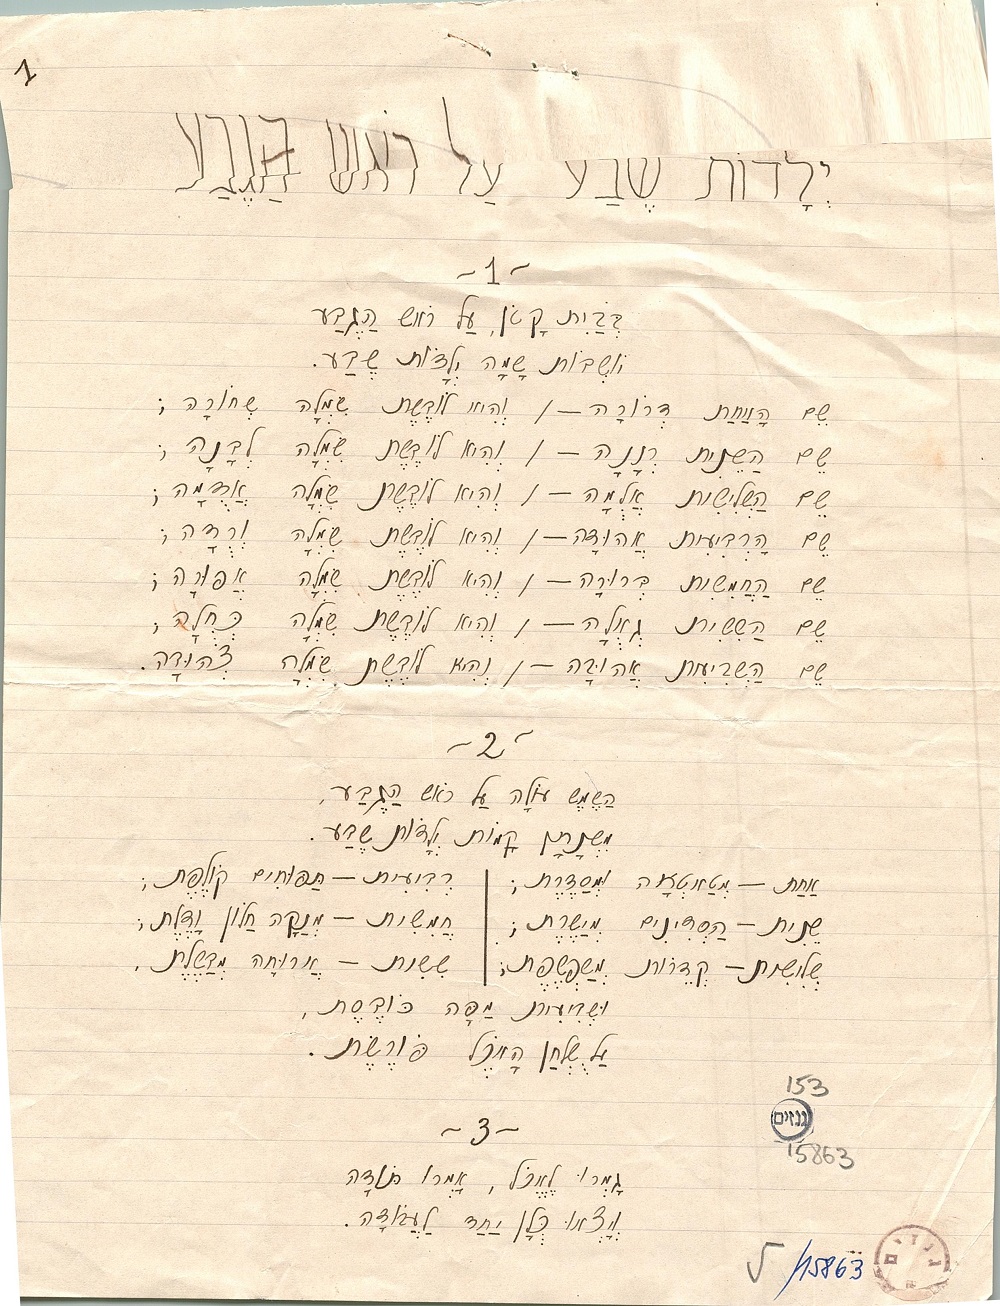 1
יְלָדוֹת שֶׁבַע עַל רֹאשׁ הַגֶּבַע
~1~
בְּבַיִת קָטָן, עַל רֹאשׁ הַגֶּבַע
יוֹשְׁבוֹת שָׁמָּה יְלָדוֹת שֶׁבַע.
שֵׁם הָאַחַת דְּרוֹרָה – / וְהִיא לוֹבֶשֶׁת שִׂמְלָה שְׁחוֹרָה;
שֵׁם הַשֵּׁנִית רְנָנָה – / וְהִיא לוֹבֶשֶׁת שִׂמְלָה לְבָנָה;
שֵׁם הַשְּׁלִישִׁית אֲלֻמָּה – / וְהִיא לוֹבֶשֶׁת שִׂמְלָה אֲדֻמָּה;
שֵׁם הָרְבִיעִית אֲהוּדָה – / וְהִיא לוֹבֶשֶׁת שִׂמְלָה וְרֻדָּה;
שֵׁם הַחֲמִשִׁית בְּרוּרָה – / וְהִיא לוֹבֶשֶׁת שִׂמְלָה אֲפוּרָה;
שֵׁם הַשִּׁשִּׁית גְּאֻלָּה – / וְהִיא לוֹבֶשֶׁת שִׂמְלָה כְּחֻלָּה;
שֵׁם הַשְּׁבִיעִית אֲהוּבָה – / וְהִיא לוֹבֶשֶׁת שִׂמְלָה צְהוּבָּה.
~2~
הַשֶּׁמֶשׁ עוֹלָה עַל רֹאשׁ הַגֶּבַע,
מִשְּׁנָתָן קָמוֹת יְלָדוֹת שֶׁבַע.
אַחַת – מְטַאטְאָה וּמְסַדֶּרֶת; | רְבִיעִית – תַּפּוּחִים קוֹלֶפֶת;
שֵׁנִית – הַסְּדִינִים מְיַשֶּׁרֶת; | חֲמִשִׁית – מְנַקָּה חַלּוֹן וָדֶלֶת;
שְׁלִישִׁית – קְדֵרוֹת מְשַׁפְשֶׁפֶת; | שִׁשִּׁית – אֲרוּחָה מְבַשֶּׁלֶת,
וּשְׁבִיעִית מַפָּה כּוֹבֶסֶת,
עַל שֻׁלְחַן הָאֹכֶל פּוֹרֶשֶׂת.
153
גנזים
15863
~3~
גָּמְרוּ לֶאֱכֹל, אָמְרוּ תּוֹדָה
וְיָצְאוּ כֻּלָּן יַחַד לַעֲבוֹדָה.
15863/
גנזים